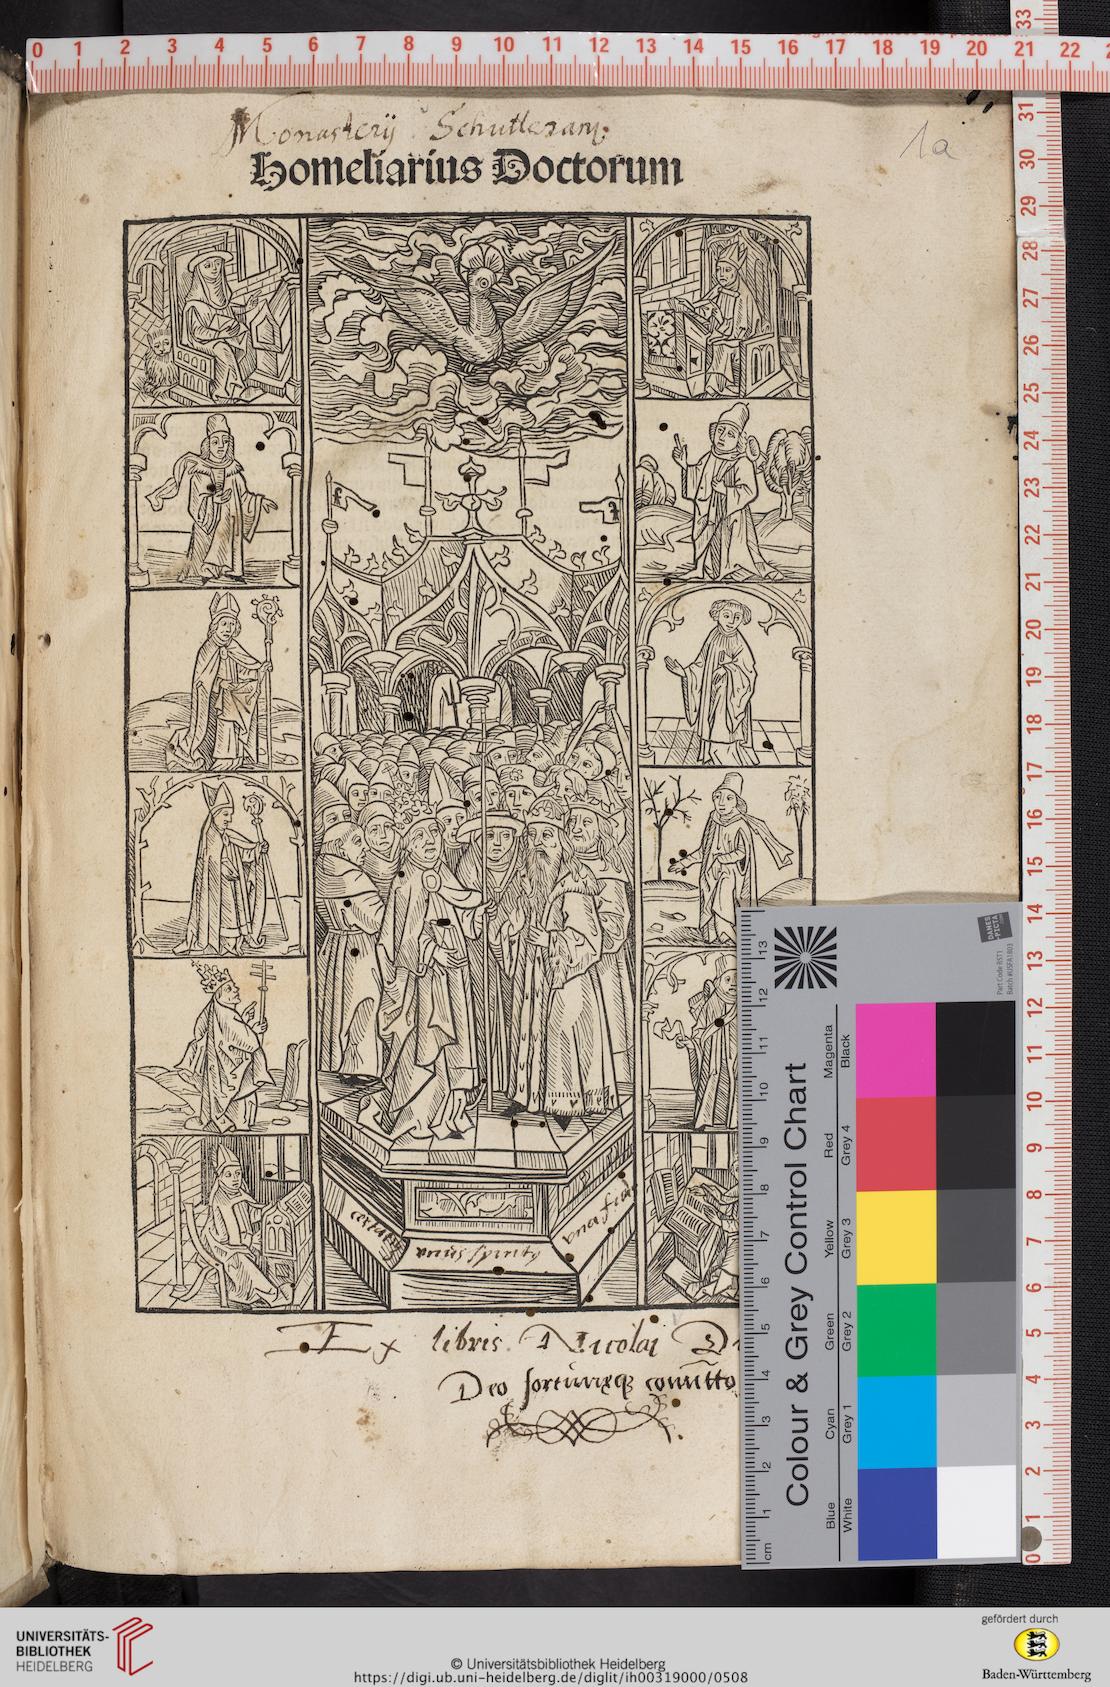 Monasterij Schutteram.
Homeliarius Doctorum
1a
unus spiritus
una fides
Ex libris Nicolai
Deo fortunæq3 comitto
Colour & Grey Control Chart
Blue Cyan Green Yellow Red Magenta
White Grey 1 Grey 2 Grey 3 Grey 4 Black
cm 1 2 3 4 5 6 7 8 9 10 11 12 13
DANES
-PICTA
.COM
Part Code BST1
0 1 2 3 4 5 6 7 8 9 10 11 12 13 14 15 16 17 18 19 20 21 22
33
31
30
29
28
27
26
25
24
23
22
21
20
19
18
17
16
15
14
13
12
11
10
9
8
7
6
5
4
3
2
1
0
UNIVERSITÄTS-
BIBLIOTHEK
HEIDELBERG
© Universitätsbibliothek Heidelberg
https://digi.ub.uni-heidelberg.de/diglit/ih00319000/0508
gefördert durch
Baden-Württemberg